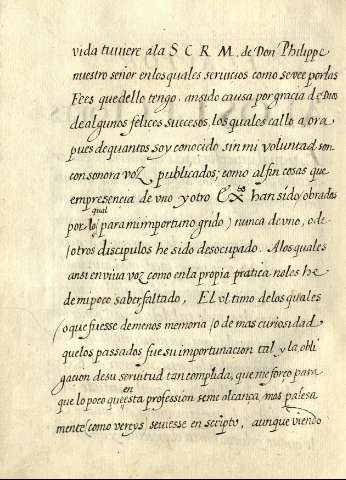 vida tuuiere ala S C R M. de Don Philippe
nuestro señor enlos quales seruicios como se vee por las
Fees que dello tengo. an sido causa por gracia de Dios
de algunos felices sucesos, los quales callo a ora
pues de quantos soy conocido sin mi voluntad, son
con sonora voz publicados; como al fin cosas que
em presencia de vno y otro Exos han sido obrados
por lo qual para mi importuno grido) nunca de vno, o de
otros discipulos he sido desocupado. Alos quales
ansi en viua voz como en la propia pratica no les he
de mi poco saber faltado, El vl timo delos quales
o que fuesse de menos memoria o de mas curiosidad
quelos passados fue su importunacion tal y la obli
gacion de su seruitud tan complida, que me forço para
que lo poco que en esta profession se me alcança, mas palesa
mente (como vereys se viesse en scripto, aunque viendo